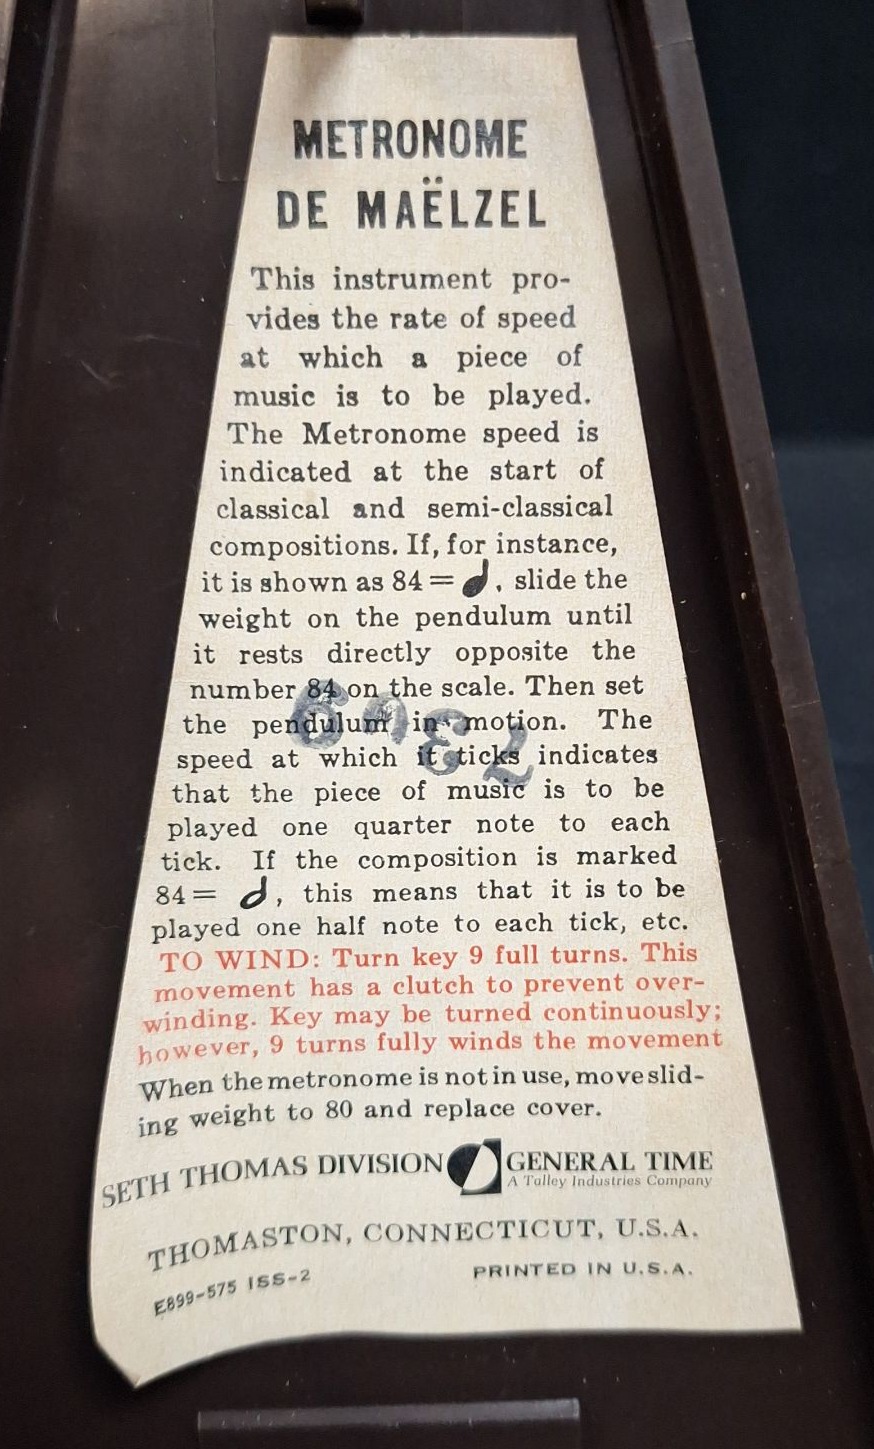 METRONOME
DE MAËLZEL
This instrument pro-
vides the rate of speed
at which a piece of
music is to be played.
The Metronome speed is
indicated at the start of
classical and semi-classical
compositions. If, for instance,
it is shown as 84 = 𝅘𝅥, slide the
weight on the pendulum until
it rests directly opposite the
number 84 on the scale. Then set
the pendulum in motion. The
speed at which it ticks indicates
that the piece of music is to be
played one quarter note to each
tick. If the composition is marked
84 = 𝅗𝅥, this means that it is to be
played one half note to each tick, etc.
TO WIND: Turn key 9 full turns. This
movement has a clutch to prevent over-
winding. Key may be turned continuously;
however, 9 turns fully winds the movement
When the metronome is not in use, move slid-
ing weight to 80 and replace cover.
SETH THOMAS DIVISION GENERAL TIME
A Talley Industries Company
THOMASTON, CONNECTICUT, U.S.A.
E899-575 ISS-2 PRINTED IN U.S.A.